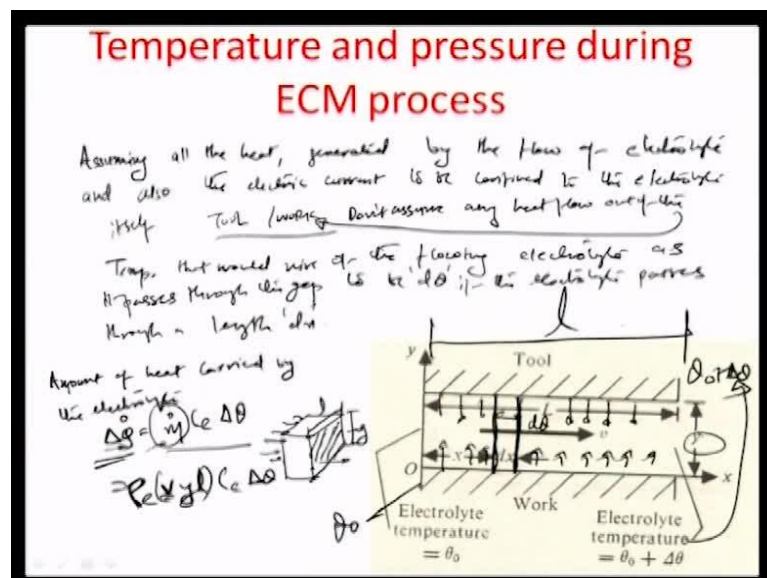 Temperature and pressure during
ECM process
Assuming all the heat, generated by the flow of electrolyte
and also the electric current is be confined to the electrolyte
itself Tool /work Don't assume any heat flow out of the
Temp. that would rise of the flowing electrolyte as
it passes through the gap to be 'dθ' if the electrolyte passes
through a length 'dx'
Amount of heat carried by
the electrolyte
ΔQ̇ = (ṁ) Ce Δθ
= ρe(v y l) Ce Δθ
l
y
Tool
θ0+Δθ
dθ
v
y
x
dx
O
x
Work
θ0
Electrolyte
temperature
= θ0
Electrolyte
temperature
= θ0 + Δθ